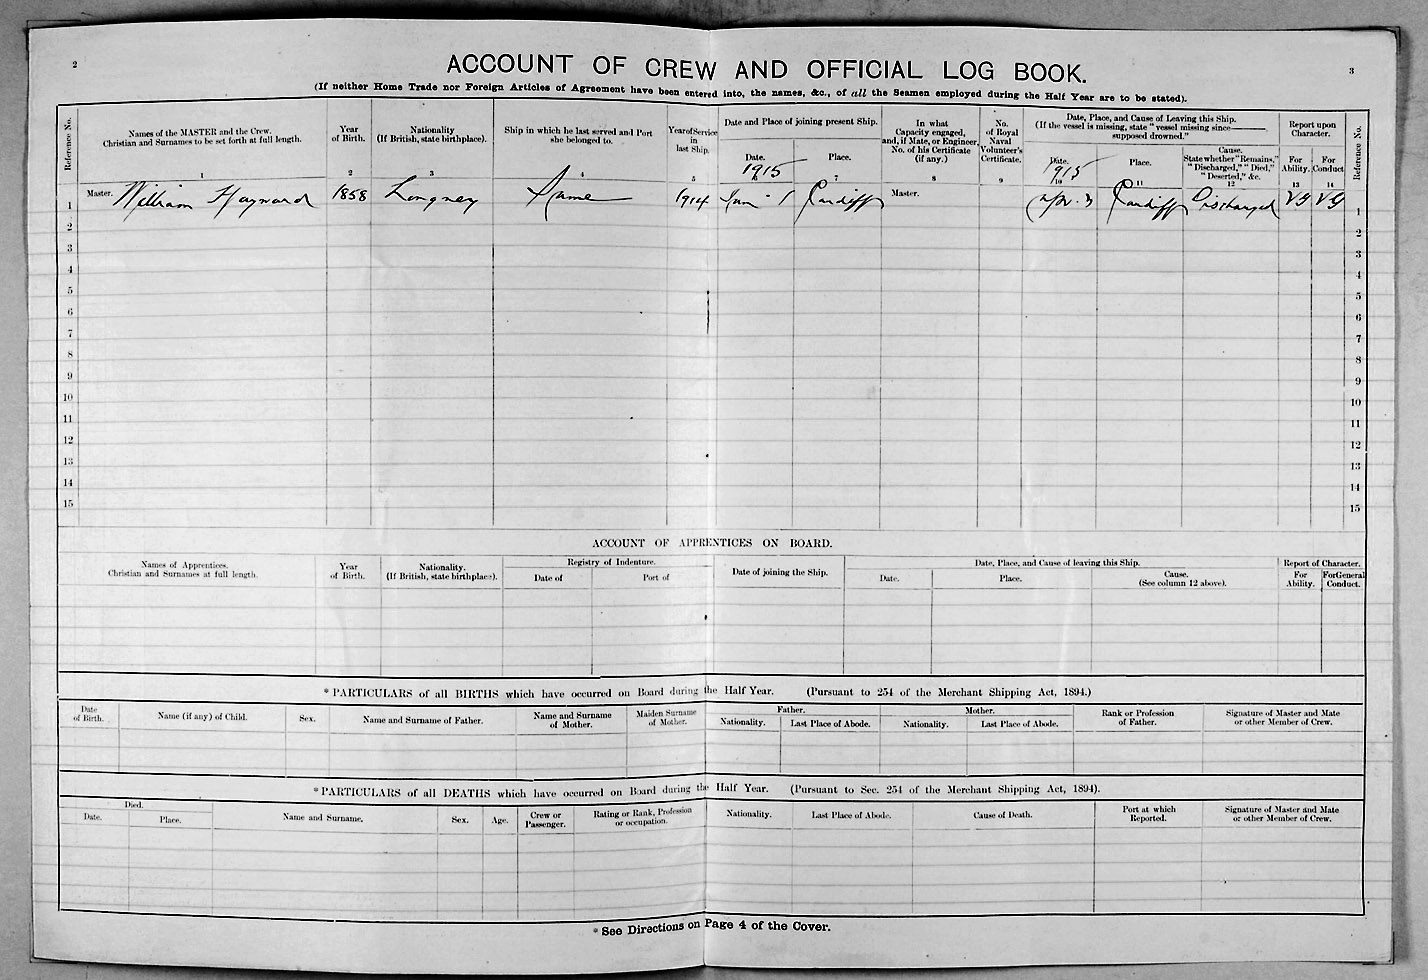 2
3
ACCOUNT OF CREW AND OFFICIAL LOG BOOK.
(If neither Home Trade nor Foreign Articles of Agreement have been entered into, the names, &c., of all the Seamen employed during the Half Year are to be stated).
Reference No.
Names of the MASTER and the Crew.
Christian and Surnames to be set forth at full length.
1
Year
of Birth.
2
Nationality
(If British, state birthplace).
3
Ship in which he last served and Port
she belonged to.
4
Year of Service
in
last Ship.
5
Date and Place of joining present Ship.
Date.
1915
6
Place.
7
In what
Capacity engaged,
and, if Mate, or Engineer,
No. of his Certificate
(if any.)
8
No.
of Royal
Naval
Volunteer's
Certificate.
9
Date, Place, and Cause of Leaving this Ship.
(If the vessel is missing, state "vessel missing since
supposed drowned."
Date.
1915
10
Place.
11
Cause.
State whether "Remains,"
"Discharged," "Died,"
"Deserted," &c.
12
Report upon
Character.
For
Ability.
13
For
Conduct
14
Reference No.
1 Master. William Hayward 1858 Longney Same 1914 Jan 1 Cardiff Master. Apr. 3 Cardiff Discharged VG VG 1
2 2
3 3
4 4
5 5
6 6
7 7
8 8
9 9
10 10
11 11
12 12
13 13
14 14
15 15
ACCOUNT OF APPRENTICES ON BOARD.
Names of Apprentices.
Christian and Surnames at full length.
Year
of Birth.
Nationality.
(If British, state birthplace).
Registry of Indenture.
Date of
Port of
Date of joining the Ship.
Date, Place, and Cause of leaving this Ship.
Date.
Place.
Cause.
(See column 12 above).
Report of Character.
For
Ability.
For General
Conduct.
*PARTICULARS of all BIRTHS which have occurred on Board during the Half Year. (Pursuant to 254 of the Merchant Shipping Act, 1894.)
Date
of Birth.
Name (if any) of Child.
Sex.
Name and Surname of Father.
Name and Surname
of Mother.
Maiden Surname
of Mother.
Father.
Nationality.
Last Place of Abode.
Mother.
Nationality.
Last Place of Abode.
Rank or Profession
of Father.
Signature of Master and Mate
or other Member of Crew.
*PARTICULARS of all DEATHS which have occurred on Board during the Half Year. (Pursuant to Sec. 254 of the Merchant Shipping Act, 1894).
Died.
Date.
Place.
Name and Surname.
Sex.
Age.
Crew or
Passenger.
Rating or Rank, Profession
or occupation.
Nationality.
Last Place of Abode.
Cause of Death.
Port at which
Reported.
Signature of Master and Mate
or other Member of Crew.
*See Directions on Page 4 of the Cover.